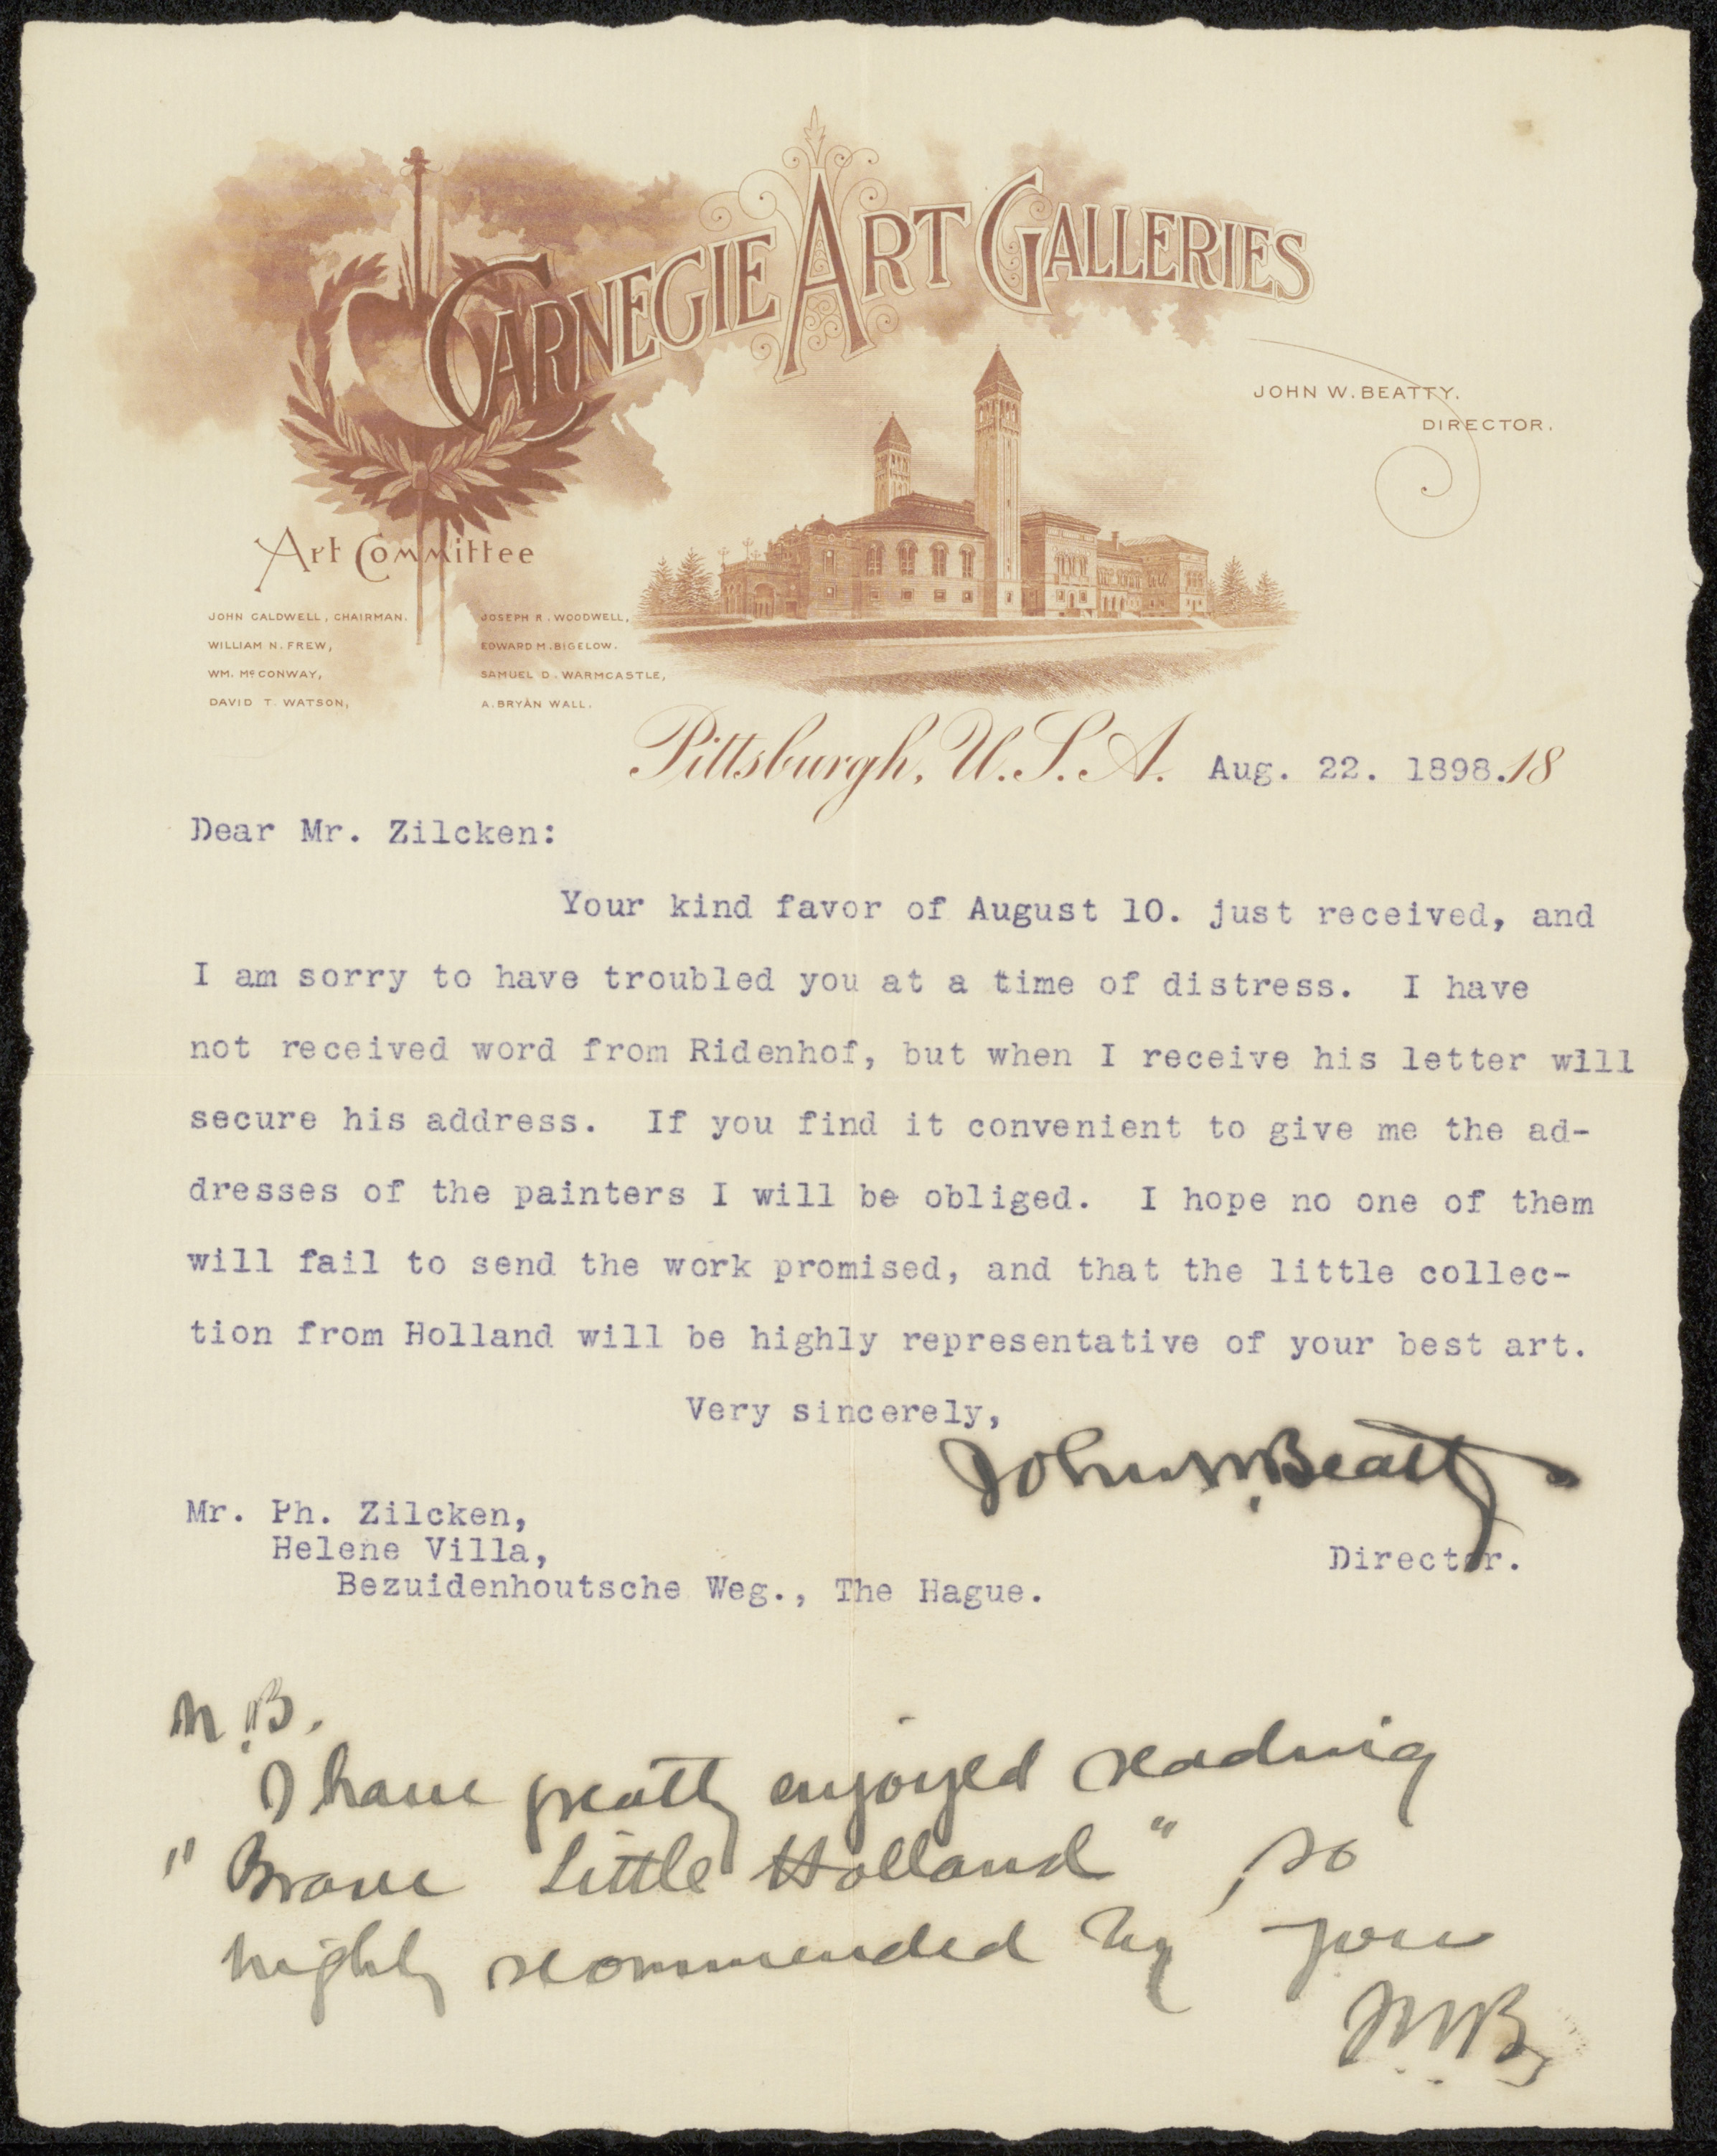 CARNEGIE ART GALLERIES
JOHN W. BEATTY.
DIRECTOR.
Art Committee
JOHN CALDWELL, CHAIRMAN.
WILLIAM N. FREW,
WM. McCONWAY,
DAVID T. WATSON,
JOSEPH R. WOODWELL,
EDWARD M. BIGELOW.
SAMUEL D. WARMCASTLE,
A. BRYAN WALL.
Pittsburgh, U.S.A. Aug. 22. 1898.18
Dear Mr. Zilcken:
Your kind favor of August 10. just received, and
I am sorry to have troubled you at a time of distress. I have
not received word from Ridenhof, but when I receive his letter will
secure his address. If you find it convenient to give me the ad-
dresses of the painters I will be obliged. I hope no one of them
will fail to send the work promised, and that the little collec-
tion from Holland will be highly representative of your best art.
Very sincerely,
John W. Beatty
Director.
Mr. Ph. Zilcken,
Helene Villa,
Bezuidenhoutsche Weg., The Hague.
N.B.
I have greatly enjoyed reading
"Brave Little Holland", so
highly recommended by you
JWB